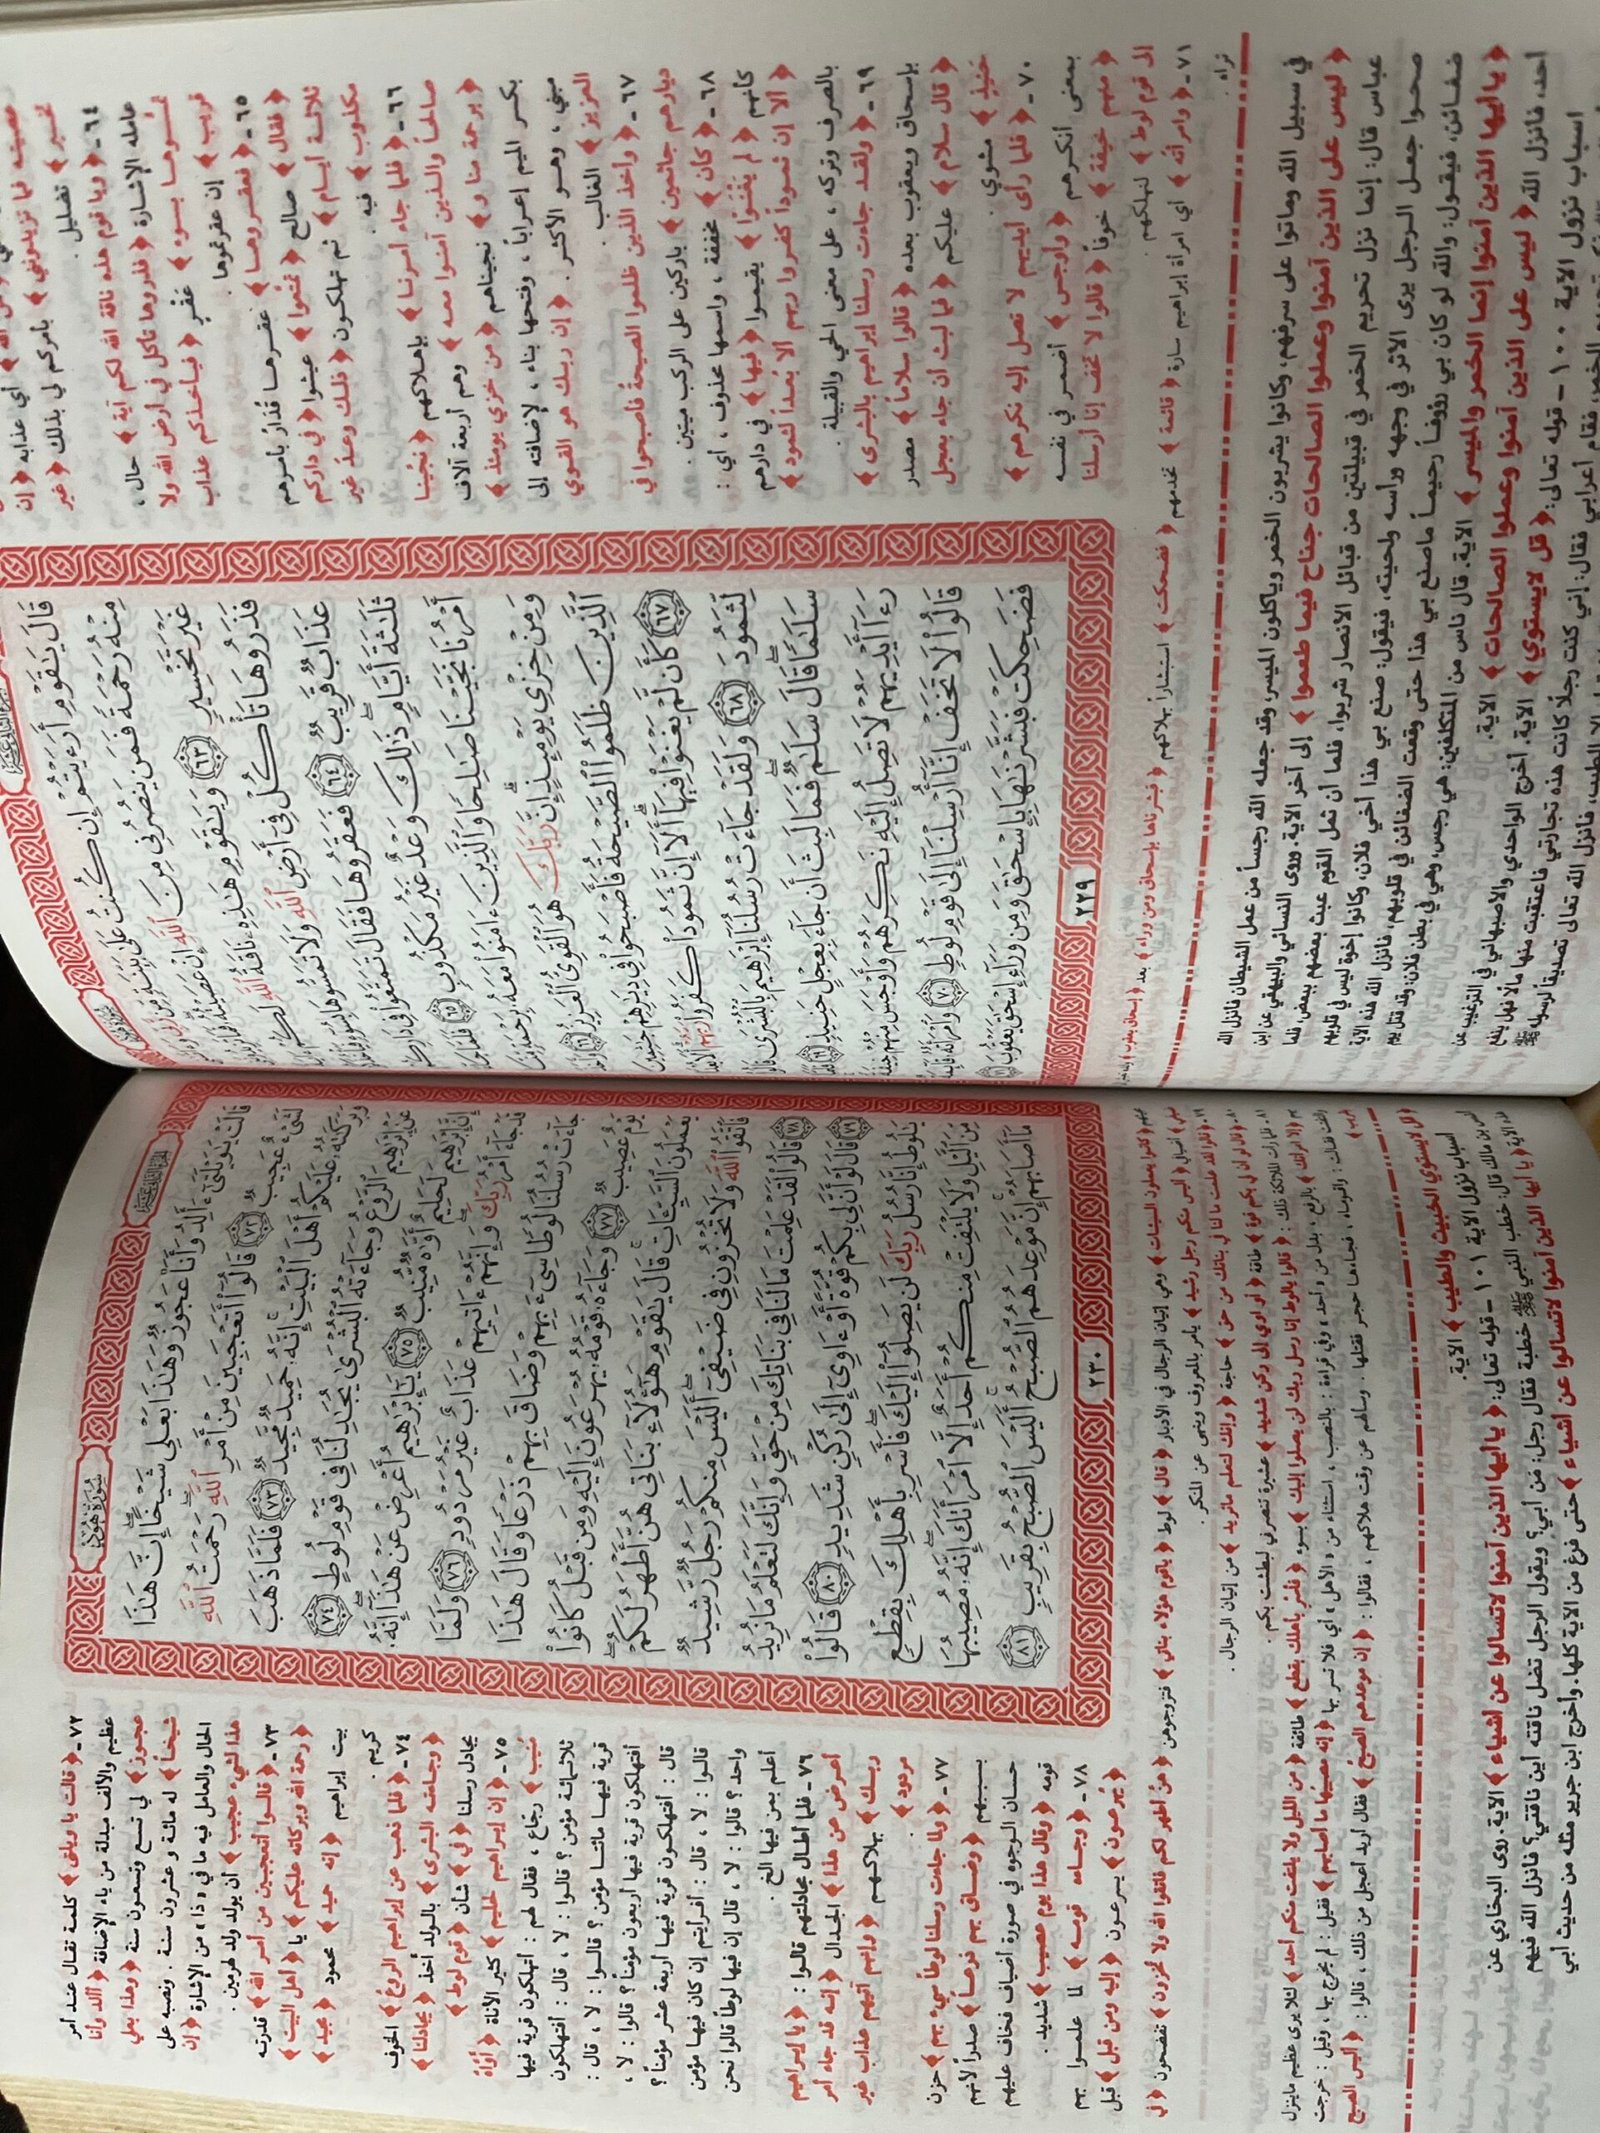 قَالَ يَـٰقَوْمِ أَرَءَيْتُمْ إِن كُنتُ عَلَىٰ بَيِّنَةٍ مِّن رَّبِّى
مِنْهُ رَحْمَةً فَمَن يَنصُرُنِى مِنَ ٱللَّهِ إِنْ عَصَيْتُهُۥ فَمَا تَزِيدُونَنِى
غَيْرَ تَخْسِيرٍ ٦٣ وَيَـٰقَوْمِ هَـٰذِهِۦ نَاقَةُ ٱللَّهِ لَكُمْ
فَذَرُوهَا تَأْكُلْ فِىٓ أَرْضِ ٱللَّهِ وَلَا تَمَسُّوهَا بِسُوٓءٍ فَيَأْخُذَكُمْ
عَذَابٌ قَرِيبٌ ٦٤ فَعَقَرُوهَا فَقَالَ تَمَتَّعُوا۟ فِى دَارِكُمْ
ثَلَـٰثَةَ أَيَّامٍ ذَٰلِكَ وَعْدٌ غَيْرُ مَكْذُوبٍ ٦٥ فَلَمَّا جَآءَ
أَمْرُنَا نَجَّيْنَا صَـٰلِحًا وَٱلَّذِينَ ءَامَنُوا۟ مَعَهُۥ بِرَحْمَةٍ مِّنَّا
وَمِنْ خِزْىِ يَوْمِئِذٍ إِنَّ رَبَّكَ هُوَ ٱلْقَوِىُّ ٱلْعَزِيزُ ٦٦ وَأَخَذَ
ٱلَّذِينَ ظَلَمُوا۟ ٱلصَّيْحَةُ فَأَصْبَحُوا۟ فِى دِيَـٰرِهِمْ جَـٰثِمِينَ
٦٧ كَأَن لَّمْ يَغْنَوْا۟ فِيهَآ أَلَآ إِنَّ ثَمُودَا۟ كَفَرُوا۟ رَبَّهُمْ أَلَا بُعْدًا
لِّثَمُودَ ٦٨ وَلَقَدْ جَآءَتْ رُسُلُنَآ إِبْرَٰهِيمَ بِٱلْبُشْرَىٰ قَالُوا۟
سَلَـٰمًا قَالَ سَلَـٰمٌ فَمَا لَبِثَ أَن جَآءَ بِعِجْلٍ حَنِيذٍ ٦٩ فَلَمَّا
رَءَآ أَيْدِيَهُمْ لَا تَصِلُ إِلَيْهِ نَكِرَهُمْ وَأَوْجَسَ مِنْهُمْ خِيفَةً
قَالُوا۟ لَا تَخَفْ إِنَّآ أُرْسِلْنَآ إِلَىٰ قَوْمِ لُوطٍ ٧٠ وَٱمْرَأَتُهُۥ قَآئِمَةٌ
فَضَحِكَتْ فَبَشَّرْنَـٰهَا بِإِسْحَـٰقَ وَمِن وَرَآءِ إِسْحَـٰقَ يَعْقُوبَ ٧١
٢٢٩
﴿ أي عذابه ﴿ إن
عصيته فما تزيدونني ﴾ بأمركم لي بذلك ﴿ غير
تخسير ﴾ تضليل .
٦٤ - ﴿ ويا قوم هذه ناقة الله لكم آية ﴾ حال ،
عامله الإشارة ﴿ فذروها تأكل في أرض الله ولا
تمسوها بسوء ﴾ عَقْرٍ ﴿ فيأخذكم عذاب
قريب ﴾ إن عقرتموها .
٦٥ - ﴿ فعقروها ﴾ عقرها قُدَارُ بأمرهم
﴿ فقال ﴾ صالح ﴿ تمتعوا ﴾ عيشوا ﴿ في داركم
ثلاثة أيام ﴾ ثم تهلكون ﴿ ذلك وعدٌ غير
مكذوب ﴾ فيه .
٦٦ - ﴿ فلما جاء أمرنا ﴾ بإهلاكهم ﴿ نَجَّيْنَا
صالحاً والذين آمنوا معه ﴾ وهم أربعة آلاف
﴿ برحمة منا و ﴾ نجيناهم ﴿ من خزي يومئذ ﴾
بكسر الميم إعراباً ، وفتحها بناء ، لإضافته إلى
مبني ، وهو الأكثر . ﴿ إن ربك هو القوي
العزيز ﴾ الغالب .
٦٧ - ﴿ وأخذ الذين ظلموا الصيحةُ فأصبحوا في
ديارهم جاثمين ﴾ باركين على الركب ميتين .
٦٨ - ﴿ كأن ﴾ مخففة ، واسمها محذوف ، أي :
كأنهم ﴿ لم يَغْنَوْا ﴾ يقيموا ﴿ فيها ﴾ في دارهم
﴿ ألا إن ثموداً كفروا ربهم ألا بُعْداً لثمود ﴾
بالصرف وتركه ، على معنى الحي والقبيلة .
٦٩ - ﴿ ولقد جاءت رسلنا إبراهيم بالبشرى ﴾
بإسحاق ويعقوب بعده ﴿ قالوا سلاماً ﴾ مصدر
﴿ قال سلام ﴾ عليكم ﴿ فما لبث أن جاء بعجل
حَنِيذٍ ﴾ مشوي .
٧٠ - ﴿ فلما رأى أيديهم لا تصل إليه نكرهم ﴾
بمعنى أنكرهم ﴿ وأوجس ﴾ أضمر في نفسه
﴿ منهم خيفة ﴾ خوفاً ﴿ قالوا لا تخف إنا أرسلنا
إلى قوم لوط ﴾ لنهلكهم .
٧١ - ﴿ وامرأته ﴾ أي امرأة إبراهيم سارة ﴿ قائمة ﴾ تخدمهم ﴿ فضحكت ﴾ استبشاراً بهلاكهم ﴿ فبشرناها بإسحاق ومن وراء ﴾ بعد ﴿ إسحاق يعقوب ﴾
تراه .
في سبيل الله وماتوا على سرفهم، وكانوا يشربون الخمر ويأكلون الميسر، وقد جعله الله رجساً من عمل الشيطان فأنزل الله
﴿ ليس على الذين آمنوا وعملوا الصالحات جناح فيما طعموا ﴾ إلى آخر الآية. وروى النسائي والبيهقي عن ابن
عباس قال: إنما نزل تحريم الخمر في قبيلتين من قبائل الأنصار شربوا، فلما أن ثمل القوم عبث بعضهم ببعض، فلما
صحوا جعل الرجل يرى الأثر في وجهه ورأسه ولحيته، فيقول: صنع بي هذا أخي فلان، وكانوا إخوة ليس في قلوبهم
ضغائن، فيقول: والله لو كان بي رؤوفاً رحيماً ما صنع بي هذا حتى وقعت الضغائن في قلوبهم، فأنزل الله هذه الآية
﴿ يا أيها الذين آمنوا إنما الخمر والميسر ﴾ الآية. قال ناس من المتكلفين: هي رجس، وهي في بطن فلان، وقد قتل يوم
أحد، فأنزل الله ﴿ ليس على الذين آمنوا وعملوا الصالحات ﴾ الآية.
أسباب نزول الآية ١٠٠ - قوله تعالى: ﴿ قل لا يستوي ﴾ الآية. أخرج الواحدي والأصبهاني في الترغيب عن
الخمر، فقام أعرابي فقال: إني كنت رجلاً كانت هذه تجارتي فاعتقبت منها مالاً فهل ينفع
إلا الطيب، فأنزل الله تعالى تصديقاً لرسوله ﷺ
سُورَةُ هُودٍ
قَالَتْ يَـٰوَيْلَتَىٰٓ ءَأَلِدُ وَأَنَا۠ عَجُوزٌ وَهَـٰذَا بَعْلِى شَيْخًا إِنَّ هَـٰذَا
لَشَىْءٌ عَجِيبٌ ٧٢ قَالُوٓا۟ أَتَعْجَبِينَ مِنْ أَمْرِ ٱللَّهِ رَحْمَتُ ٱللَّهِ
وَبَرَكَـٰتُهُۥ عَلَيْكُمْ أَهْلَ ٱلْبَيْتِ إِنَّهُۥ حَمِيدٌ مَّجِيدٌ ٧٣ فَلَمَّا ذَهَبَ
عَنْ إِبْرَٰهِيمَ ٱلرَّوْعُ وَجَآءَتْهُ ٱلْبُشْرَىٰ يُجَـٰدِلُنَا فِى قَوْمِ لُوطٍ ٧٤
إِنَّ إِبْرَٰهِيمَ لَحَلِيمٌ أَوَّٰهٌ مُّنِيبٌ ٧٥ يَـٰٓإِبْرَٰهِيمُ أَعْرِضْ عَنْ هَـٰذَآ إِنَّهُۥ
قَدْ جَآءَ أَمْرُ رَبِّكَ وَإِنَّهُمْ ءَاتِيهِمْ عَذَابٌ غَيْرُ مَرْدُودٍ ٧٦ وَلَمَّا
جَآءَتْ رُسُلُنَا لُوطًا سِىٓءَ بِهِمْ وَضَاقَ بِهِمْ ذَرْعًا وَقَالَ هَـٰذَا
يَوْمٌ عَصِيبٌ ٧٧ وَجَآءَهُۥ قَوْمُهُۥ يُهْرَعُونَ إِلَيْهِ وَمِن قَبْلُ كَانُوا۟
يَعْمَلُونَ ٱلسَّيِّـَٔاتِ قَالَ يَـٰقَوْمِ هَـٰٓؤُلَآءِ بَنَاتِى هُنَّ أَطْهَرُ لَكُمْ
فَٱتَّقُوا۟ ٱللَّهَ وَلَا تُخْزُونِ فِى ضَيْفِىٓ أَلَيْسَ مِنكُمْ رَجُلٌ رَّشِيدٌ
٧٨ قَالُوا۟ لَقَدْ عَلِمْتَ مَا لَنَا فِى بَنَاتِكَ مِنْ حَقٍّ وَإِنَّكَ لَتَعْلَمُ مَا نُرِيدُ
٧٩ قَالَ لَوْ أَنَّ لِى بِكُمْ قُوَّةً أَوْ ءَاوِىٓ إِلَىٰ رُكْنٍ شَدِيدٍ ٨٠ قَالُوا۟
يَـٰلُوطُ إِنَّا رُسُلُ رَبِّكَ لَن يَصِلُوٓا۟ إِلَيْكَ فَأَسْرِ بِأَهْلِكَ بِقِطْعٍ
مِّنَ ٱلَّيْلِ وَلَا يَلْتَفِتْ مِنكُمْ أَحَدٌ إِلَّا ٱمْرَأَتَكَ إِنَّهُۥ مُصِيبُهَا
مَآ أَصَابَهُمْ إِنَّ مَوْعِدَهُمُ ٱلصُّبْحُ أَلَيْسَ ٱلصُّبْحُ بِقَرِيبٍ ٨١
٢٣٠
٧٢ - ﴿ قالت يا ويلتى ﴾ كلمة تقال عند أمر
عظيم والألف مبدلة من ياء الإضافة ﴿ أألد وأنا
عجوز ﴾ لي تسع وتسعون سنة ﴿ وهذا بعلي
شيخاً ﴾ له مائة وعشرون سنة . ونصبه على
الحال والعامل فيه ما في « ذا » من الإشارة ﴿ إن
هذا لشيء عجيب ﴾ أن يولد ولد لهرمين .
٧٣ - ﴿ قالوا أتعجبين من أمر الله ﴾ قدرته
﴿ رحمة الله وبركاته عليكم ﴾ يا ﴿ أهل البيت ﴾
بيت إبراهيم ﴿ إنه حميد ﴾ محمود ﴿ مجيد ﴾
كريم .
٧٤ - ﴿ فلما ذهب عن إبراهيم الروعُ ﴾ الخوف
﴿ وجاءته البشرى ﴾ بالولد أخذ ﴿ يجادلنا ﴾
يجادل رسلنا ﴿ في ﴾ شأن ﴿ قوم لوط ﴾
٧٥ - ﴿ إن إبراهيم لحليم ﴾ كثير الأناة ﴿ أَوَّاهٌ
مُنيب ﴾ رجّاع ، فقال لهم : أتهلكون قرية فيها
ثلاثمائة مؤمن ؟ قالوا : لا ، قال : أفتهلكون
قرية فيها مائتا مؤمن ؟ قالوا : لا ، قال :
أفتهلكون قرية فيها أربعون مؤمناً ؟ قالوا : لا ،
قال : أفتهلكون قرية فيها أربعة عشر مؤمناً ؟
قالوا : لا ، قال : أفرأيتم إن كان فيها مؤمن
واحد ؟ قالوا : لا ، قال إن فيها لوطاً قالوا نحن
أعلم بمن فيها الخ .
٧٦ - فلما أطال مجادلتهم قالوا : ﴿ يا إبراهيم
أعرض عن هذا ﴾ الجدال ﴿ إنه قد جاء أمر
ربك ﴾ بهلاكهم ﴿ وإنهم آتيهم عذاب غير
مردود ﴾ .
٧٧ - ﴿ ولما جاءت رسلنا لوطاً سيء بهم ﴾ حزن
بسببهم ﴿ وضاق بهم ذرعاً ﴾ صدراً لأنهم
حسان الوجوه في صورة أضياف فخاف عليهم
قومه ﴿ وقال هذا يوم عصيب ﴾ شديد .
٧٨ - ﴿ وجاءه قومه ﴾ لما علموا بهم
﴿ يُهرعون ﴾ يسرعون ﴿ إليه ومن قبل ﴾ قبل
مجيئهم ﴿ كانوا يعملون السيئات ﴾ وهي إتيان الرجال في الأدبار ﴿ قال ﴾ لوط ﴿ يا قوم هؤلاء بناتي ﴾ فتزوجوهن ﴿ هنّ أطهر لكم فاتقوا الله ولا تخزون ﴾ تفضحون ﴿ في
ضيفي ﴾ أضيافي ﴿ أليس منكم رجل رشيد ﴾ يأمر بالمعروف وينهى عن المنكر .
٧٩ - ﴿ قالوا لقد علمت ما لنا في بناتك من حق ﴾ حاجة ﴿ وإنك لتعلم ما نريد ﴾ من إتيان الرجال .
٨٠ - ﴿ قال لو أن لي بكم قوة ﴾ طاقة ﴿ أو آوي إلى ركن شديد ﴾ عشيرة تنصرني لبطشت بكم .
٨١ - فلما رأت الملائكة ذلك : ﴿ قالوا يا لوط إنا رسل ربك لن يصلوا إليك ﴾ بسوء ﴿ فأسر بأهلك بقطع ﴾ طائفة ﴿ من الليل ولا يلتفت منكم أحد ﴾ لئلا يرى عظيم ما ينزل
بهم ﴿ إلا امرأتك ﴾ بالرفع ، بدل من « أحد » ، وفي قراءة : بالنصب ، استثناء من « الأهل » ، أي فلا تسر بها ﴿ إنه مصيبها ما أصابهم ﴾ فقيل : لم يخرج بها ، وقيل : خرجت
والتفتت فقالت : واقوماه ، فجاءها حجر فقتلها . وسألهم عن وقت هلاكهم ، فقالوا : ﴿ إن موعدهم الصبحُ ﴾ فقال أريد أعجل من ذلك ، قالوا : ﴿ أليس الصبح
بقريب ﴾
﴿ قل لا يستوي الخبيث والطيب ﴾ الآية .
أسباب نزول الآية ١٠١ - قوله تعالى: ﴿ يا أيها الذين آمنوا لا تسألوا عن أشياء ﴾ الآية. روى البخاري عن
أنس بن مالك قال: خطب النبي ﷺ خطبة فقال رجل: من أبي؟ ويقول الرجل تضل ناقته أين ناقتي؟ فأنزل الله فيهم
هذه الآية ﴿ يا أيها الذين آمنوا لا تسألوا عن أشياء ﴾ حتى فرغ من الآية كلها. وأخرج ابن جرير مثله من حديث أبي